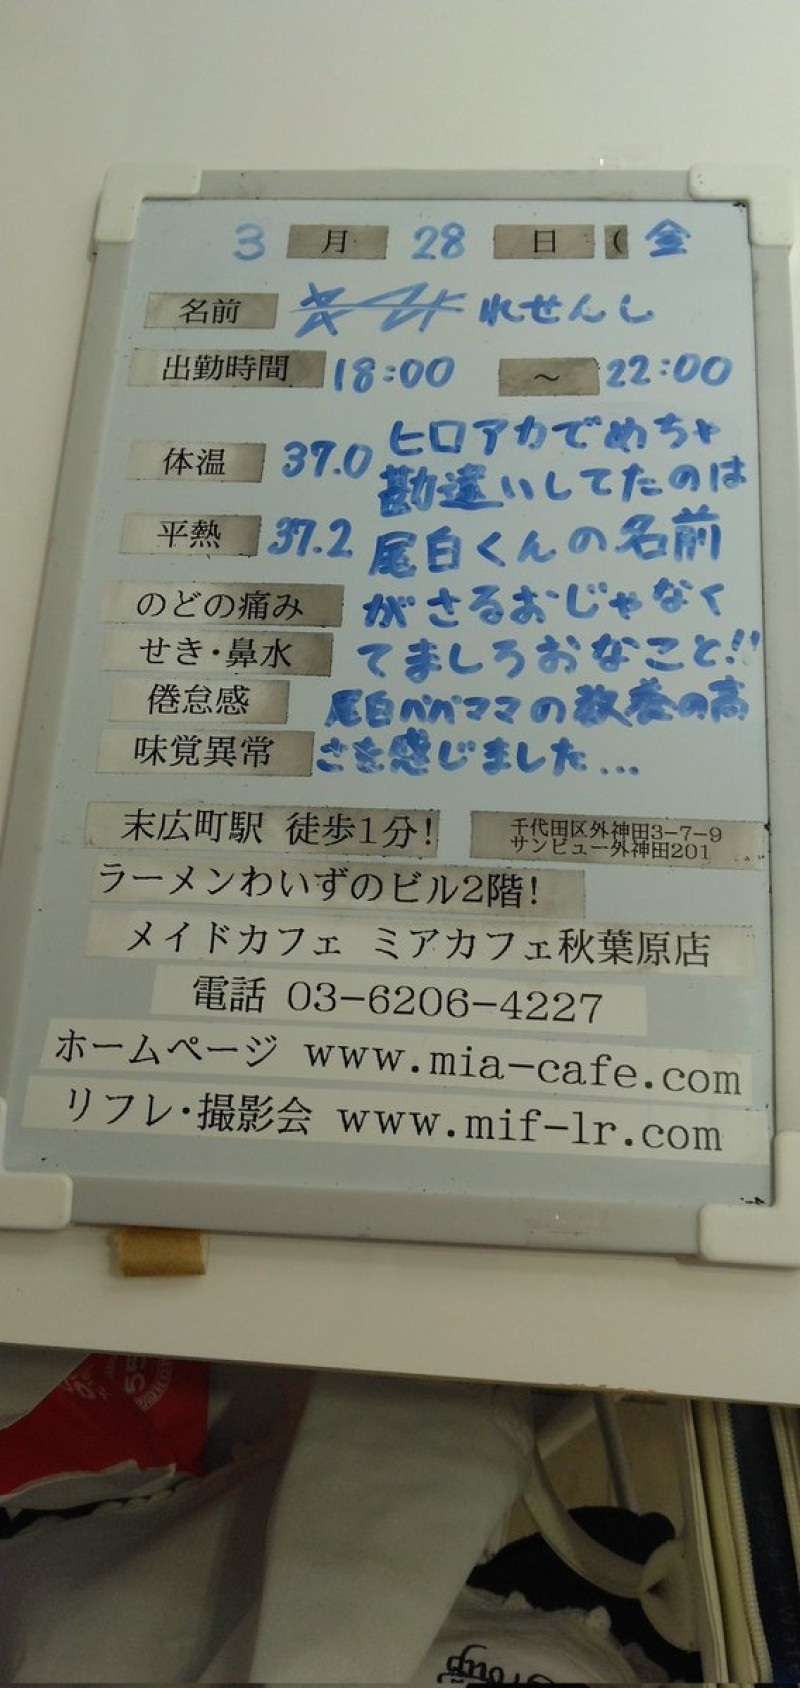 3 月 28 日 ( 金
名前 れせんし
出勤時間 18:00 ~ 22:00
体温 37.0
平熱 37.2
のどの痛み
せき・鼻水
倦怠感
味覚異常
ヒロアカでめちゃ
勘違いしてたのは
尾白くんの名前
がさるおじゃなく
てましろおなこと!!
尾白パパママの教養の高
さを感じました...
末広町駅 徒歩1分!
千代田区外神田3-7-9
サンビュー外神田201
ラーメンわいずのビル2階!
メイドカフェ ミアカフェ秋葉原店
電話 03-6206-4227
ホームページ www.mia-cafe.com
リフレ・撮影会 www.mif-lr.com
Group